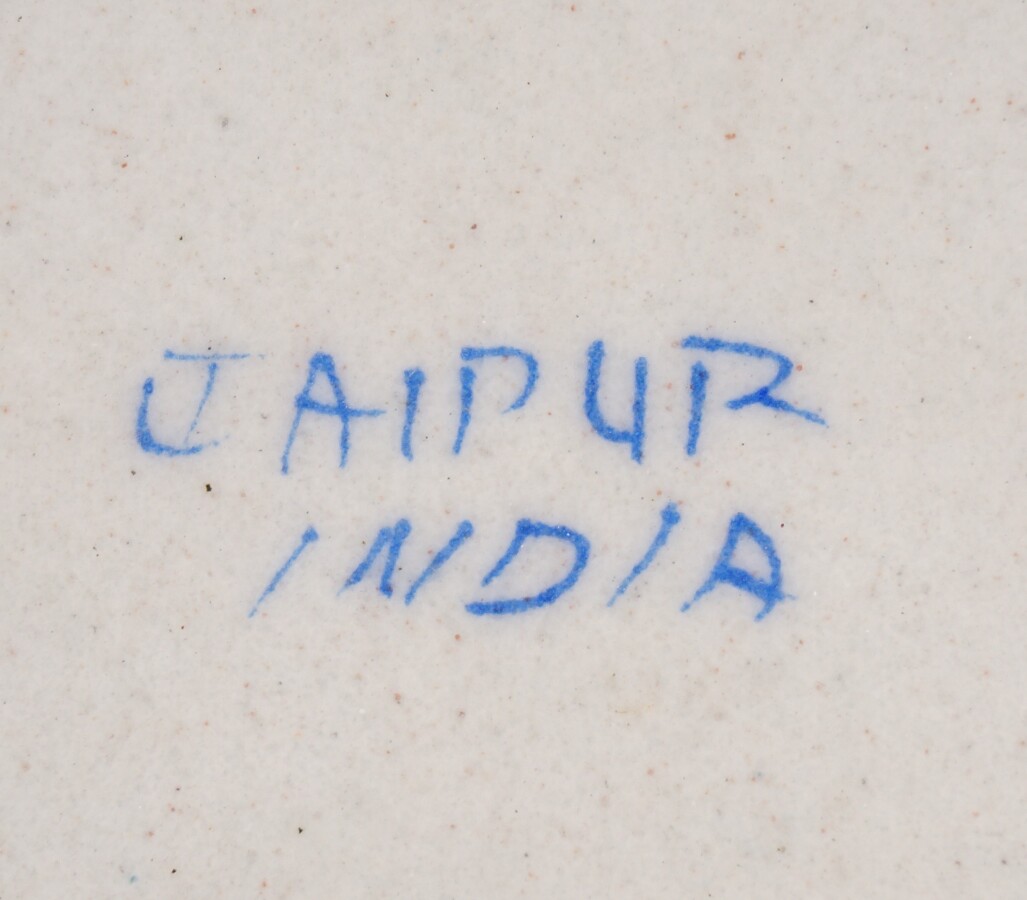 JAIPUR
INDIA